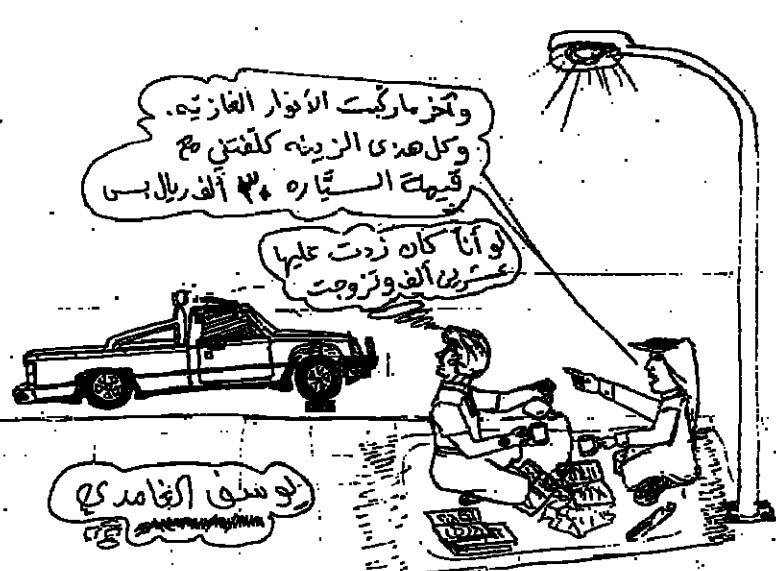 وآخر ماركبت الأنوار الغازيه.
وكل هذى الزينه كلفتني مع
قيمة السياره ٣٠ ألف ريال بس
لو أنا كان زدت عليها
عشرين ألف وتزوجت
يوسف الغامدي